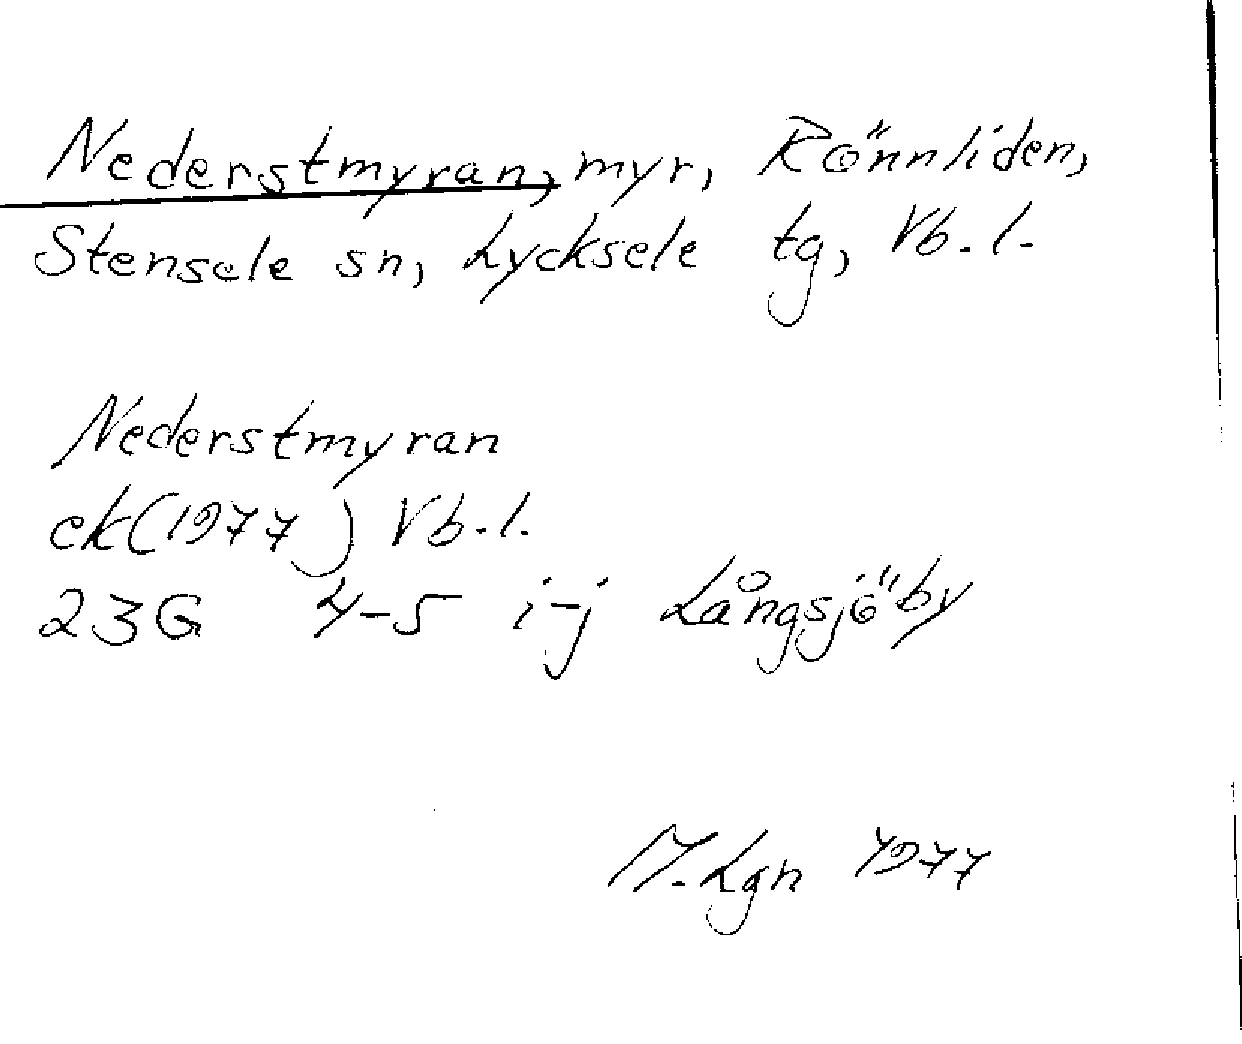 Nederstmyran, myr, Rönnliden,
Stensele sn, Lycksele tg, Vb. l.
Nederstmyran
ek(1977) Vb. l.
23G 4-5 i-j Långsjöby
M. Lgn 1977